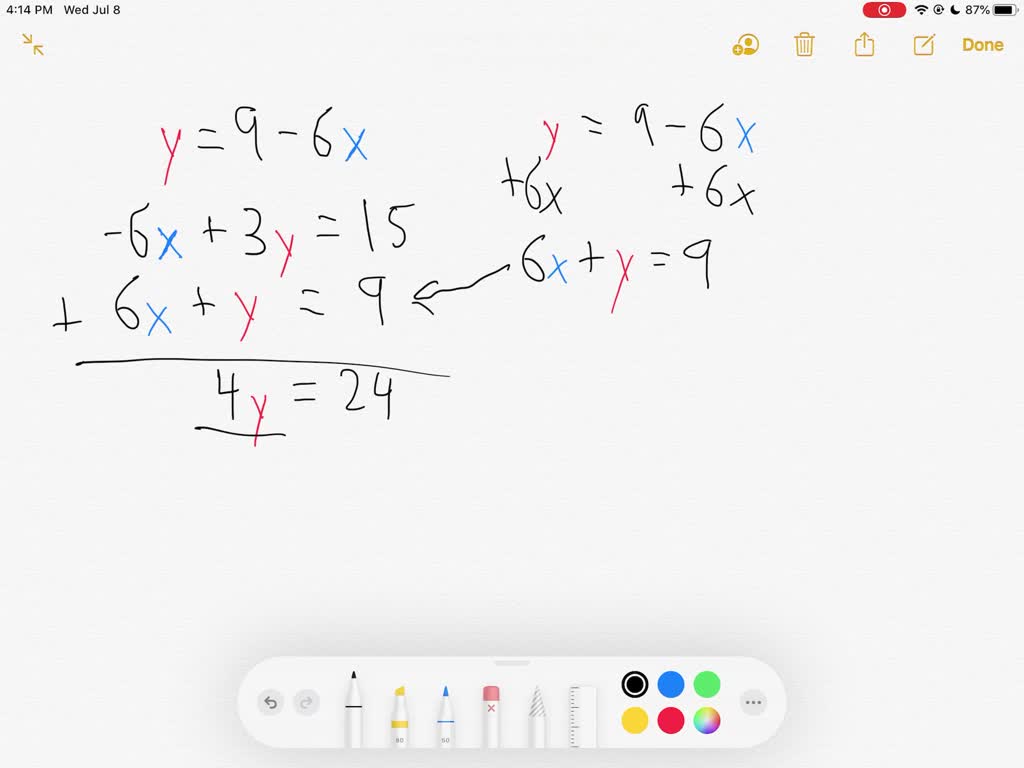 4:14 PM Wed Jul 8 87%
Done
y = 9 - 6x
-6x + 3y = 15
+ 6x + y = 9
4y = 24
y = 9 - 6x
+6x +6x
6x + y = 9
80
50